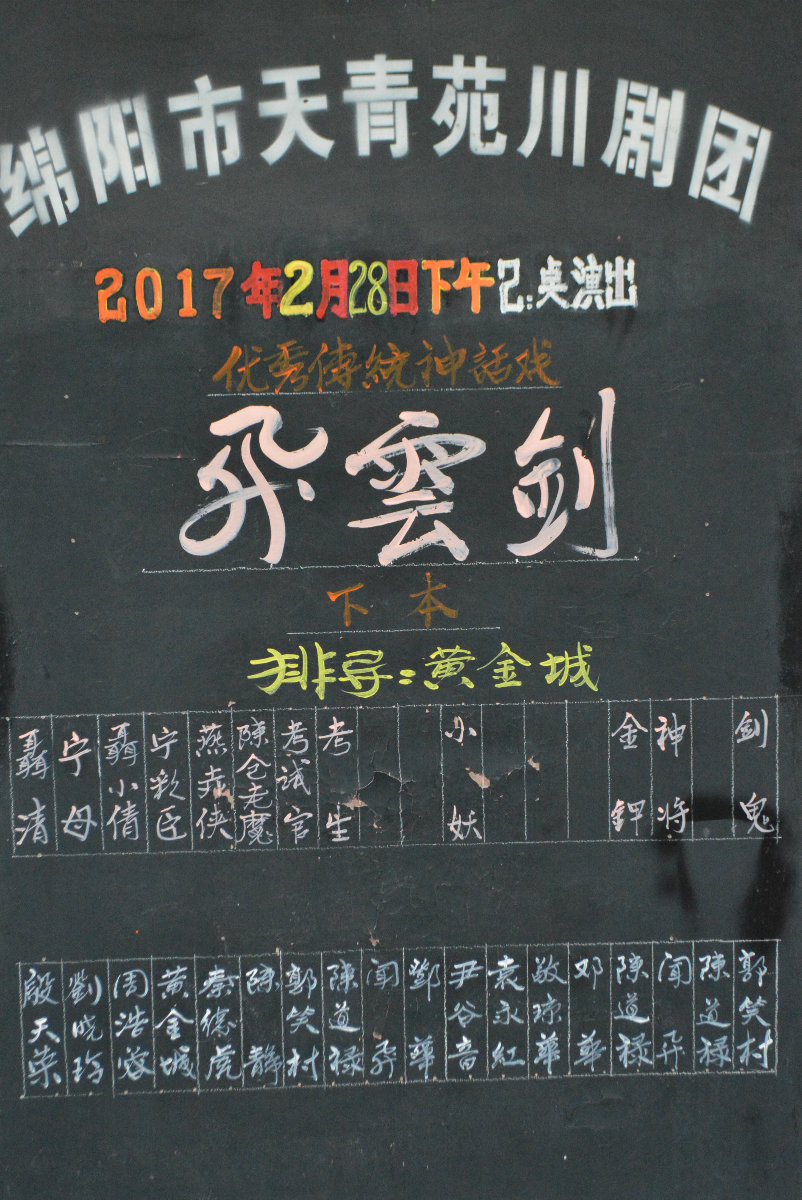 绵阳市天青苑川剧团
2017年2月28日下午2:点演出
优秀傳統神話戏
飛雲剑
下本
排导:黄金城
聶清 宁母 聶小倩 宁彩臣 燕赤侠 陳仓老魔 考试官 考生 小妖 金钾 神将 剑鬼
殷天荣 劉晓玲 周浩容 黄金城 秦德虎 陈静 郭笑村 陳道禄 闻飛 鄧華 尹谷音 袁永紅 敬琼華 邓華 陈道禄 闻飛 陈道禄 郭笑村